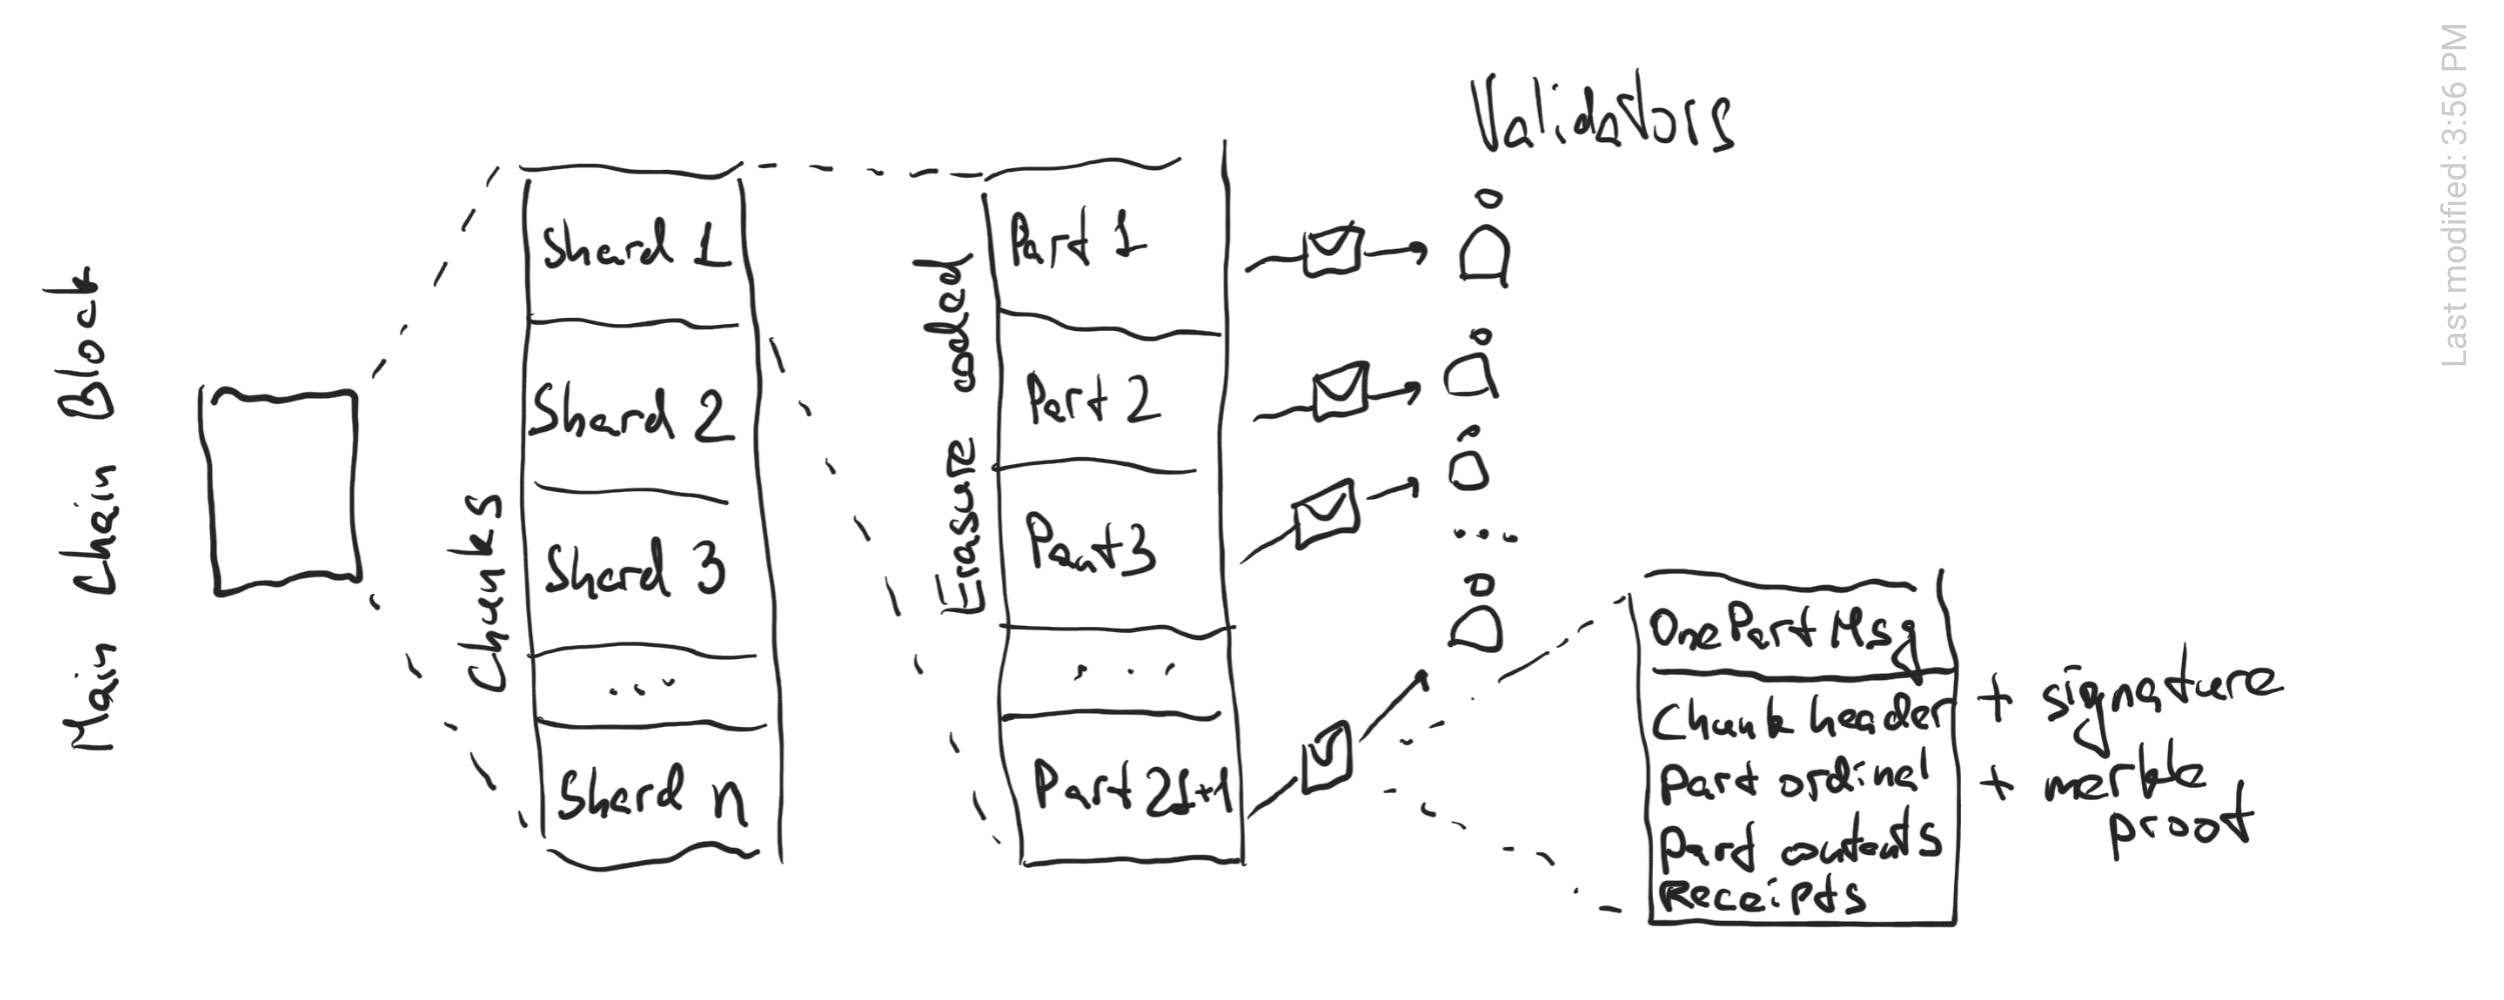 Main Chain Block
Chunks
Shard 1
Shard 2
Shard 3
...
Shard n
Erasure coded
Part 1
Part 2
Part 3
...
Part 2f+1
Validators
...
OnePartMsg
Chunk header + signature
Part ordinal + merkle
proof
Part contents
Receipts
Last modified: 3:56 PM